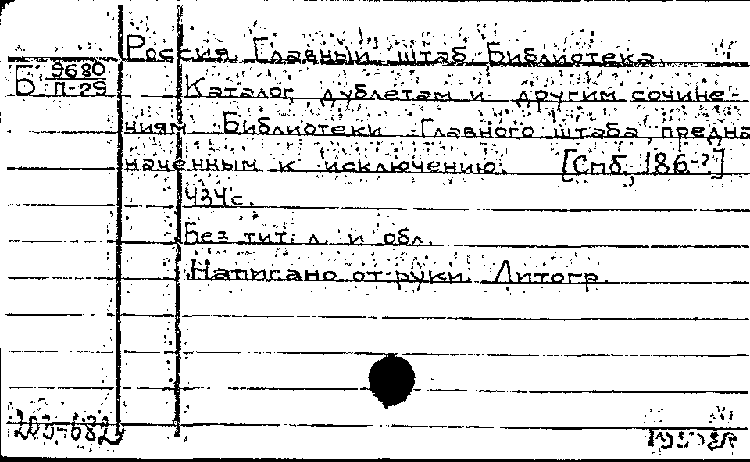 Россия. Главный штаб. Библиотека.
Б 9680
П-29
Каталог дублетам и другим сочине-
ниям Библиотеки Главного штаба, предна
наченным к исключению. [Спб., 186-?]
434с.
Без тит. л. и обл.
Написано от руки. Литогр.
203-682